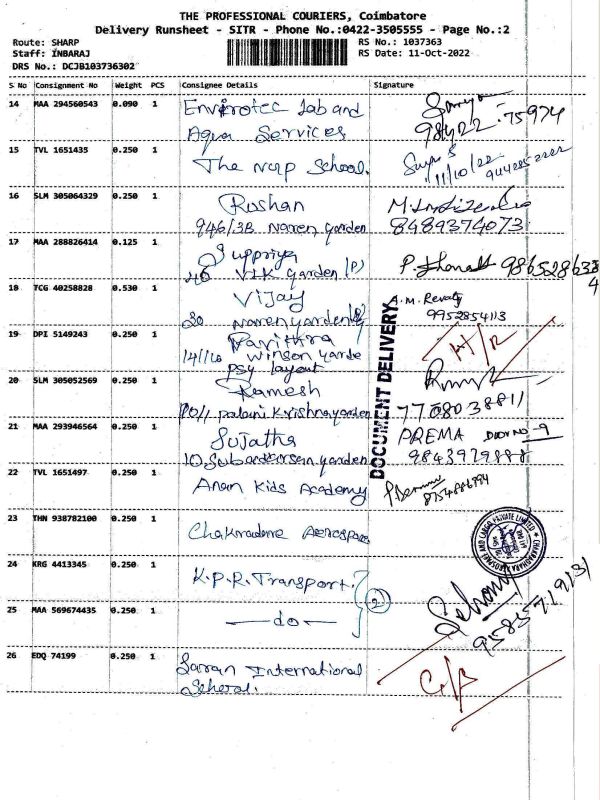 THE PROFESSIONAL COURIERS, Coimbatore
Delivery Runsheet - SITR - Phone No.:0422-3505555 - Page No.:2
Route: SHARP
Staff: INBARAJ
DRS No.: DCJB103736302
RS No.: 1037363
RS Date: 11-Oct-2022
S No Consignment No Weight PCS Consignee Details Signature
14 MAA 294560543 0.090 1 Envirotec Lab and
Aqua Services
98422 75974
15 TVL 1651435 0.250 1 The School.
11/10/22
16 SLM 305064329 0.250 1 Roshan
946/3B Naren Garden 8489374073
17 MAA 288826414 0.125 1 Suppriya
46 VIK Garden (P)
18 TCG 40258828 0.530 1 Vijay A.M. Revathy
20 Naren Garden 9952854113
19 DPI 5149243 0.250 1 Pavithra
14/110 Winson Garde
psy layout
20 SLM 305052569 0.250 1 Ramesh
palani Krishna garden 7708038811
21 MAA 293946564 0.250 1 Sujatha PREMA Door No - 9
10 garden 9843979888
22 TVL 1651497 0.250 1 Kids Academy
8754886994
23 THN 938782100 0.250 1 Aerospace
24 KRG 4413345 0.250 1 K.P.R. Transport.
2
25 MAA 569674435 0.250 1 do
9585719131
26 EDQ 74199 0.250 1 Saran International
School.
DOCUMENT DELIVERY